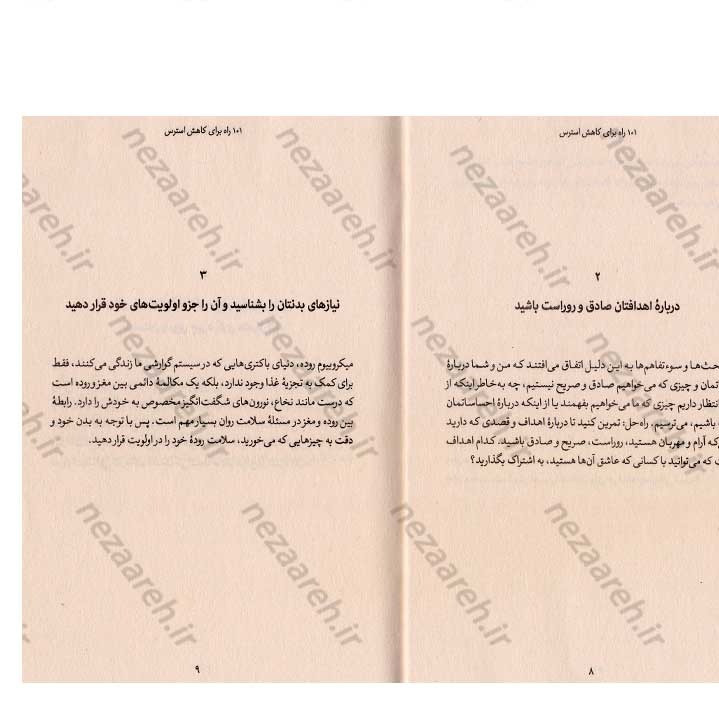 ۱۰۱ راه برای کاهش استرس
۲
دربارهٔ اهدافتان صادق و روراست باشید
حث‌ها و سوءتفاهم‌ها به این دلیل اتفاق می‌افتند که من و شما دربارهٔ
تمان و چیزی که می‌خواهیم صادق و صریح نیستیم، چه به‌خاطر اینکه از
انتظار داریم چیزی که ما می‌خواهیم بفهمند یا از اینکه دربارهٔ احساساتمان
باشیم، می‌ترسیم. راه‌حل: تمرین کنید تا دربارهٔ اهداف و قصدی که دارید
که آرام و مهربان هستید، روراست، صریح و صادق باشید. کدام اهداف
که می‌توانید با کسانی که عاشق آن‌ها هستید، به اشتراک بگذارید؟
۸
۱۰۱ راه برای کاهش استرس
۳
نیازهای بدنتان را بشناسید و آن را جزو اولویت‌های خود قرار دهید
میکروبیوم روده، دنیای باکتری‌هایی که در سیستم گوارشی ما زندگی می‌کنند، فقط
برای کمک به تجزیهٔ غذا وجود ندارد، بلکه یک مکالمهٔ دائمی بین مغز و روده است
که درست مانند نخاع، نورون‌های شگفت‌انگیز مخصوص به خودش را دارد. رابطهٔ
بین روده و مغز در مسئلهٔ سلامت روان بسیار مهم است. پس با توجه به بدن خود و
دقت به چیزهایی که می‌خورید، سلامت رودهٔ خود را در اولویت قرار دهید.
۹
nezaareh.ir
nezaareh.ir
nezaareh.ir
nezaareh.ir
nezaareh.ir
nezaareh.ir
nezaareh.ir
nezaareh.ir
nezaareh.ir
nezaareh.ir
nezaareh.ir
nezaareh.ir